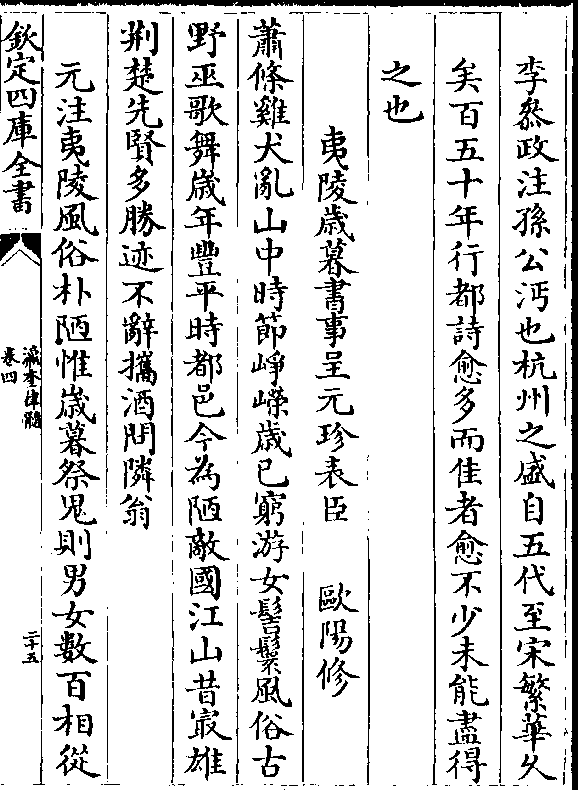 李叅政注孫公沔也杭州之盛自五代至宋繁華乆
矣百五十年行都詩愈多而佳者愈不少未能盡得
之也
夷陵歳暮書事呈元珍表臣 歐陽修
蕭條雞犬亂山中時節崢嶸歳已窮游女髻鬟風俗古
野巫歌舞歳年豐平時都邑今為陋敵國江山昔㝡雄
荆楚先賢多勝迹不辭攜酒問隣翁
元注夷陵風俗朴陋惟歳暮祭鬼則男女數百相從
欽定四庫全書
瀛奎律髓
卷四
二十五